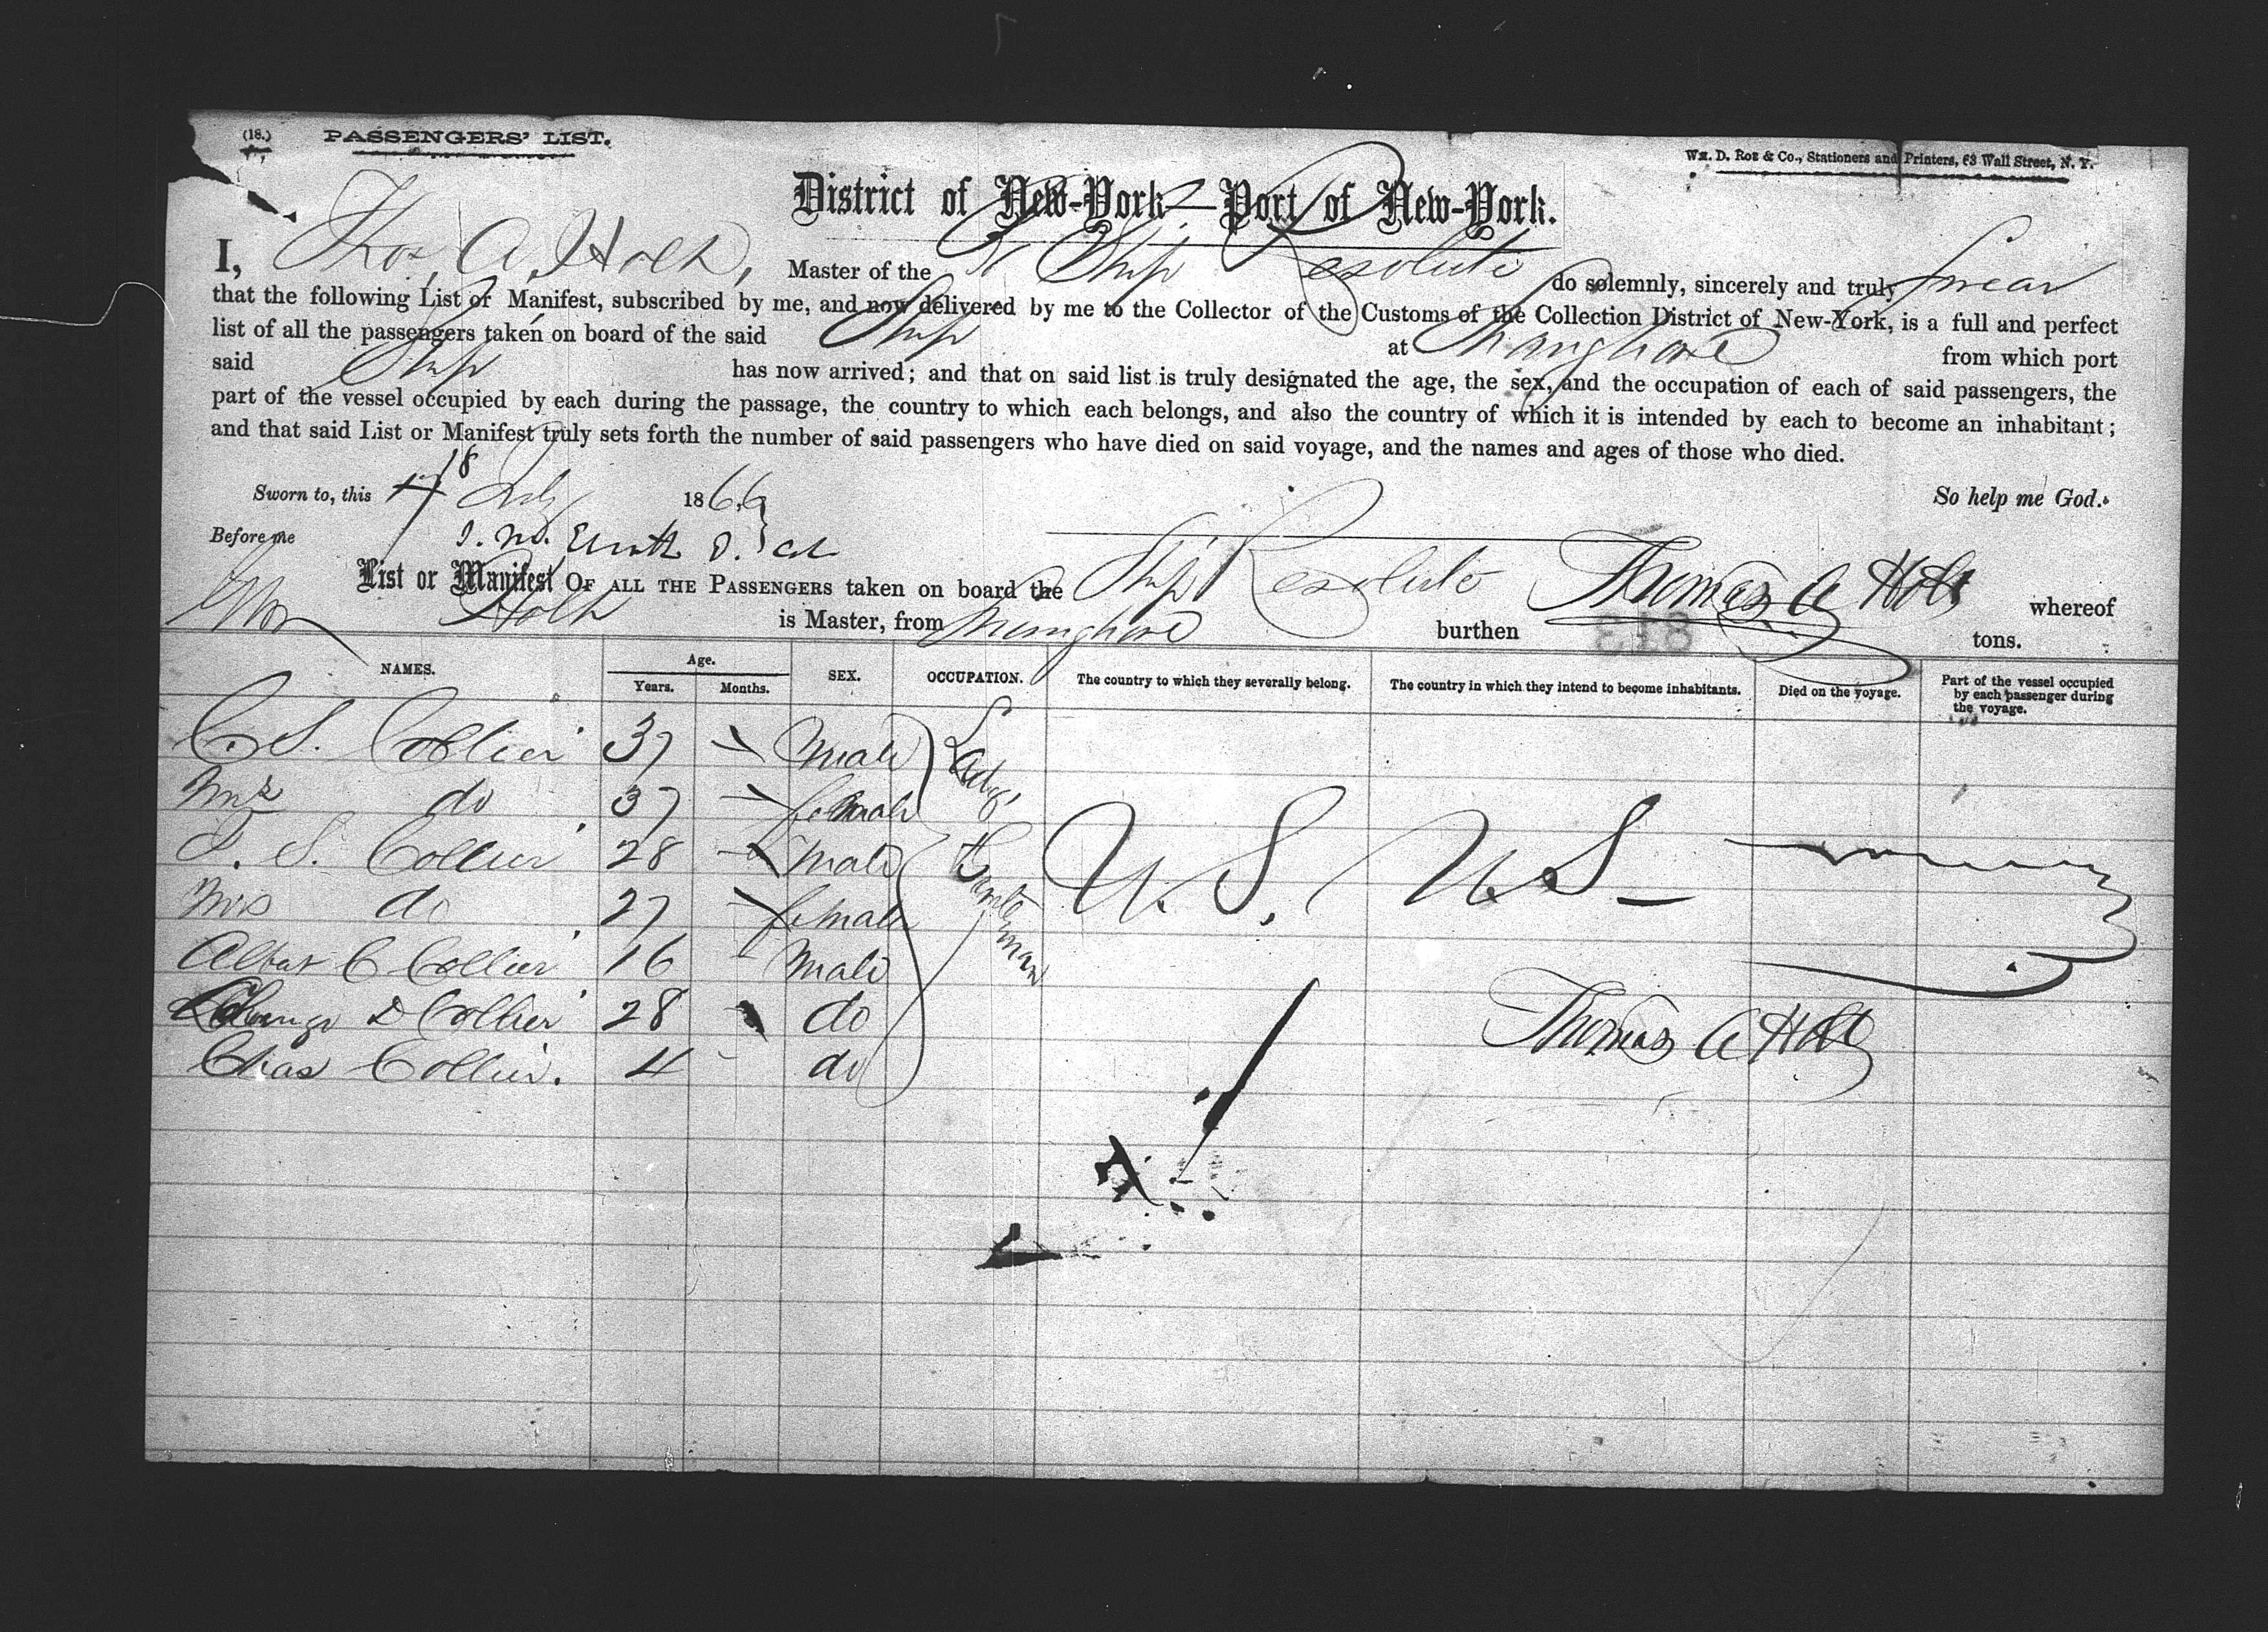 (18.) PASSENGERS' LIST.
Wm. D. Roe & Co., Stationers and Printers, 63 Wall Street, N. Y.
District of New-York—Port of New-York.
I, Thos. A. Holt, Master of the Ship Resolute do solemnly, sincerely and truly swear
that the following List or Manifest, subscribed by me, and now delivered by me to the Collector of the Customs of the Collection District of New-York, is a full and perfect
list of all the passengers taken on board of the said Ship at Shanghae from which port
said Ship has now arrived; and that on said list is truly designated the age, the sex, and the occupation of each of said passengers, the
part of the vessel occupied by each during the passage, the country to which each belongs, and also the country of which it is intended by each to become an inhabitant;
and that said List or Manifest truly sets forth the number of said passengers who have died on said voyage, and the names and ages of those who died.
Sworn to, this 18 July 1866 So help me God.
Before me
List or Manifest OF ALL THE PASSENGERS taken on board the Ship Resolute Thomas A Holt whereof
Holt is Master, from Shanghae burthen 813 tons.
NAMES. Age. Years. Months. SEX. OCCUPATION. The country to which they severally belong. The country in which they intend to become inhabitants. Died on the voyage. Part of the vessel occupied by each passenger during the voyage.
C. S. Collier 37 Male
Mrs do 37 female
S. Collier 28 Male
Mrs do 27 female
U.S. U.S
Gentleman
Albert C Collier 16 Male
D Collier 28 do
Thomas A Holt
Chas Collier. 4 do